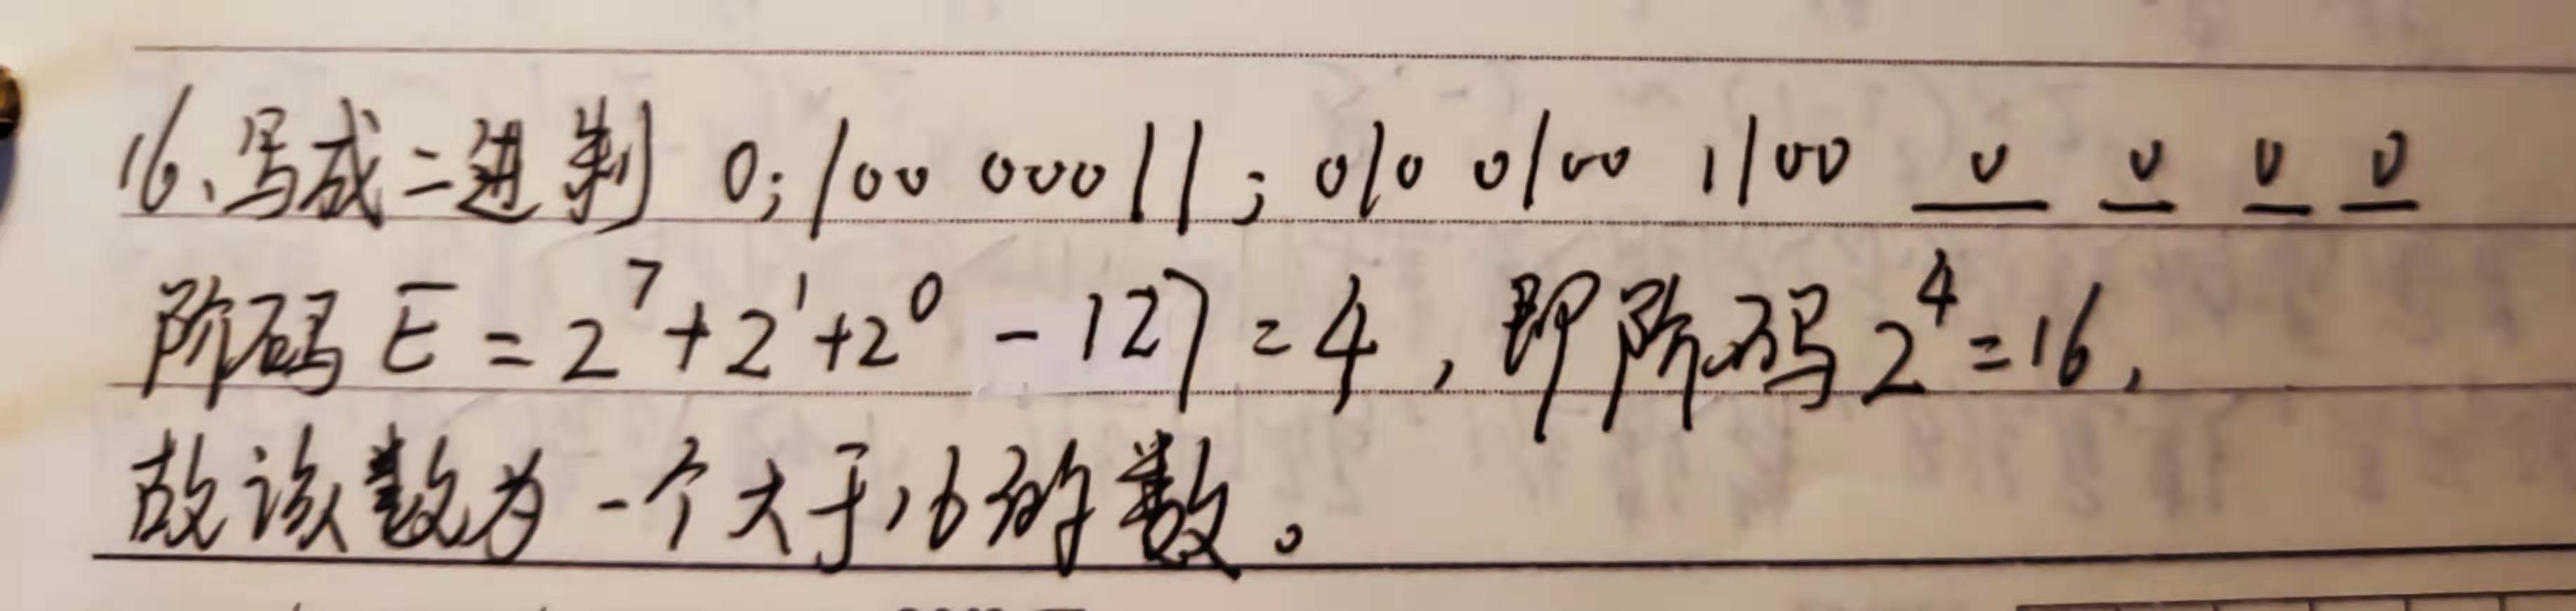 16、写成二进制 0;100 00011; 010 0100 1100 0 0 0 0
阶码 E = 2^7 + 2^1 + 2^0 - 127 = 4 , 即阶码 2^4 = 16 ,
故该数为一个大于16的数。